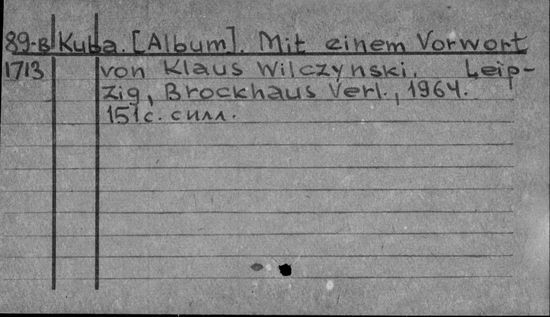 89-B Kuba. [Album]. Mit einem Vorwort
1713 von Klaus Wilczynski. Leip-
zig, Brockhaus Verl., 1964.
151 с. силл.